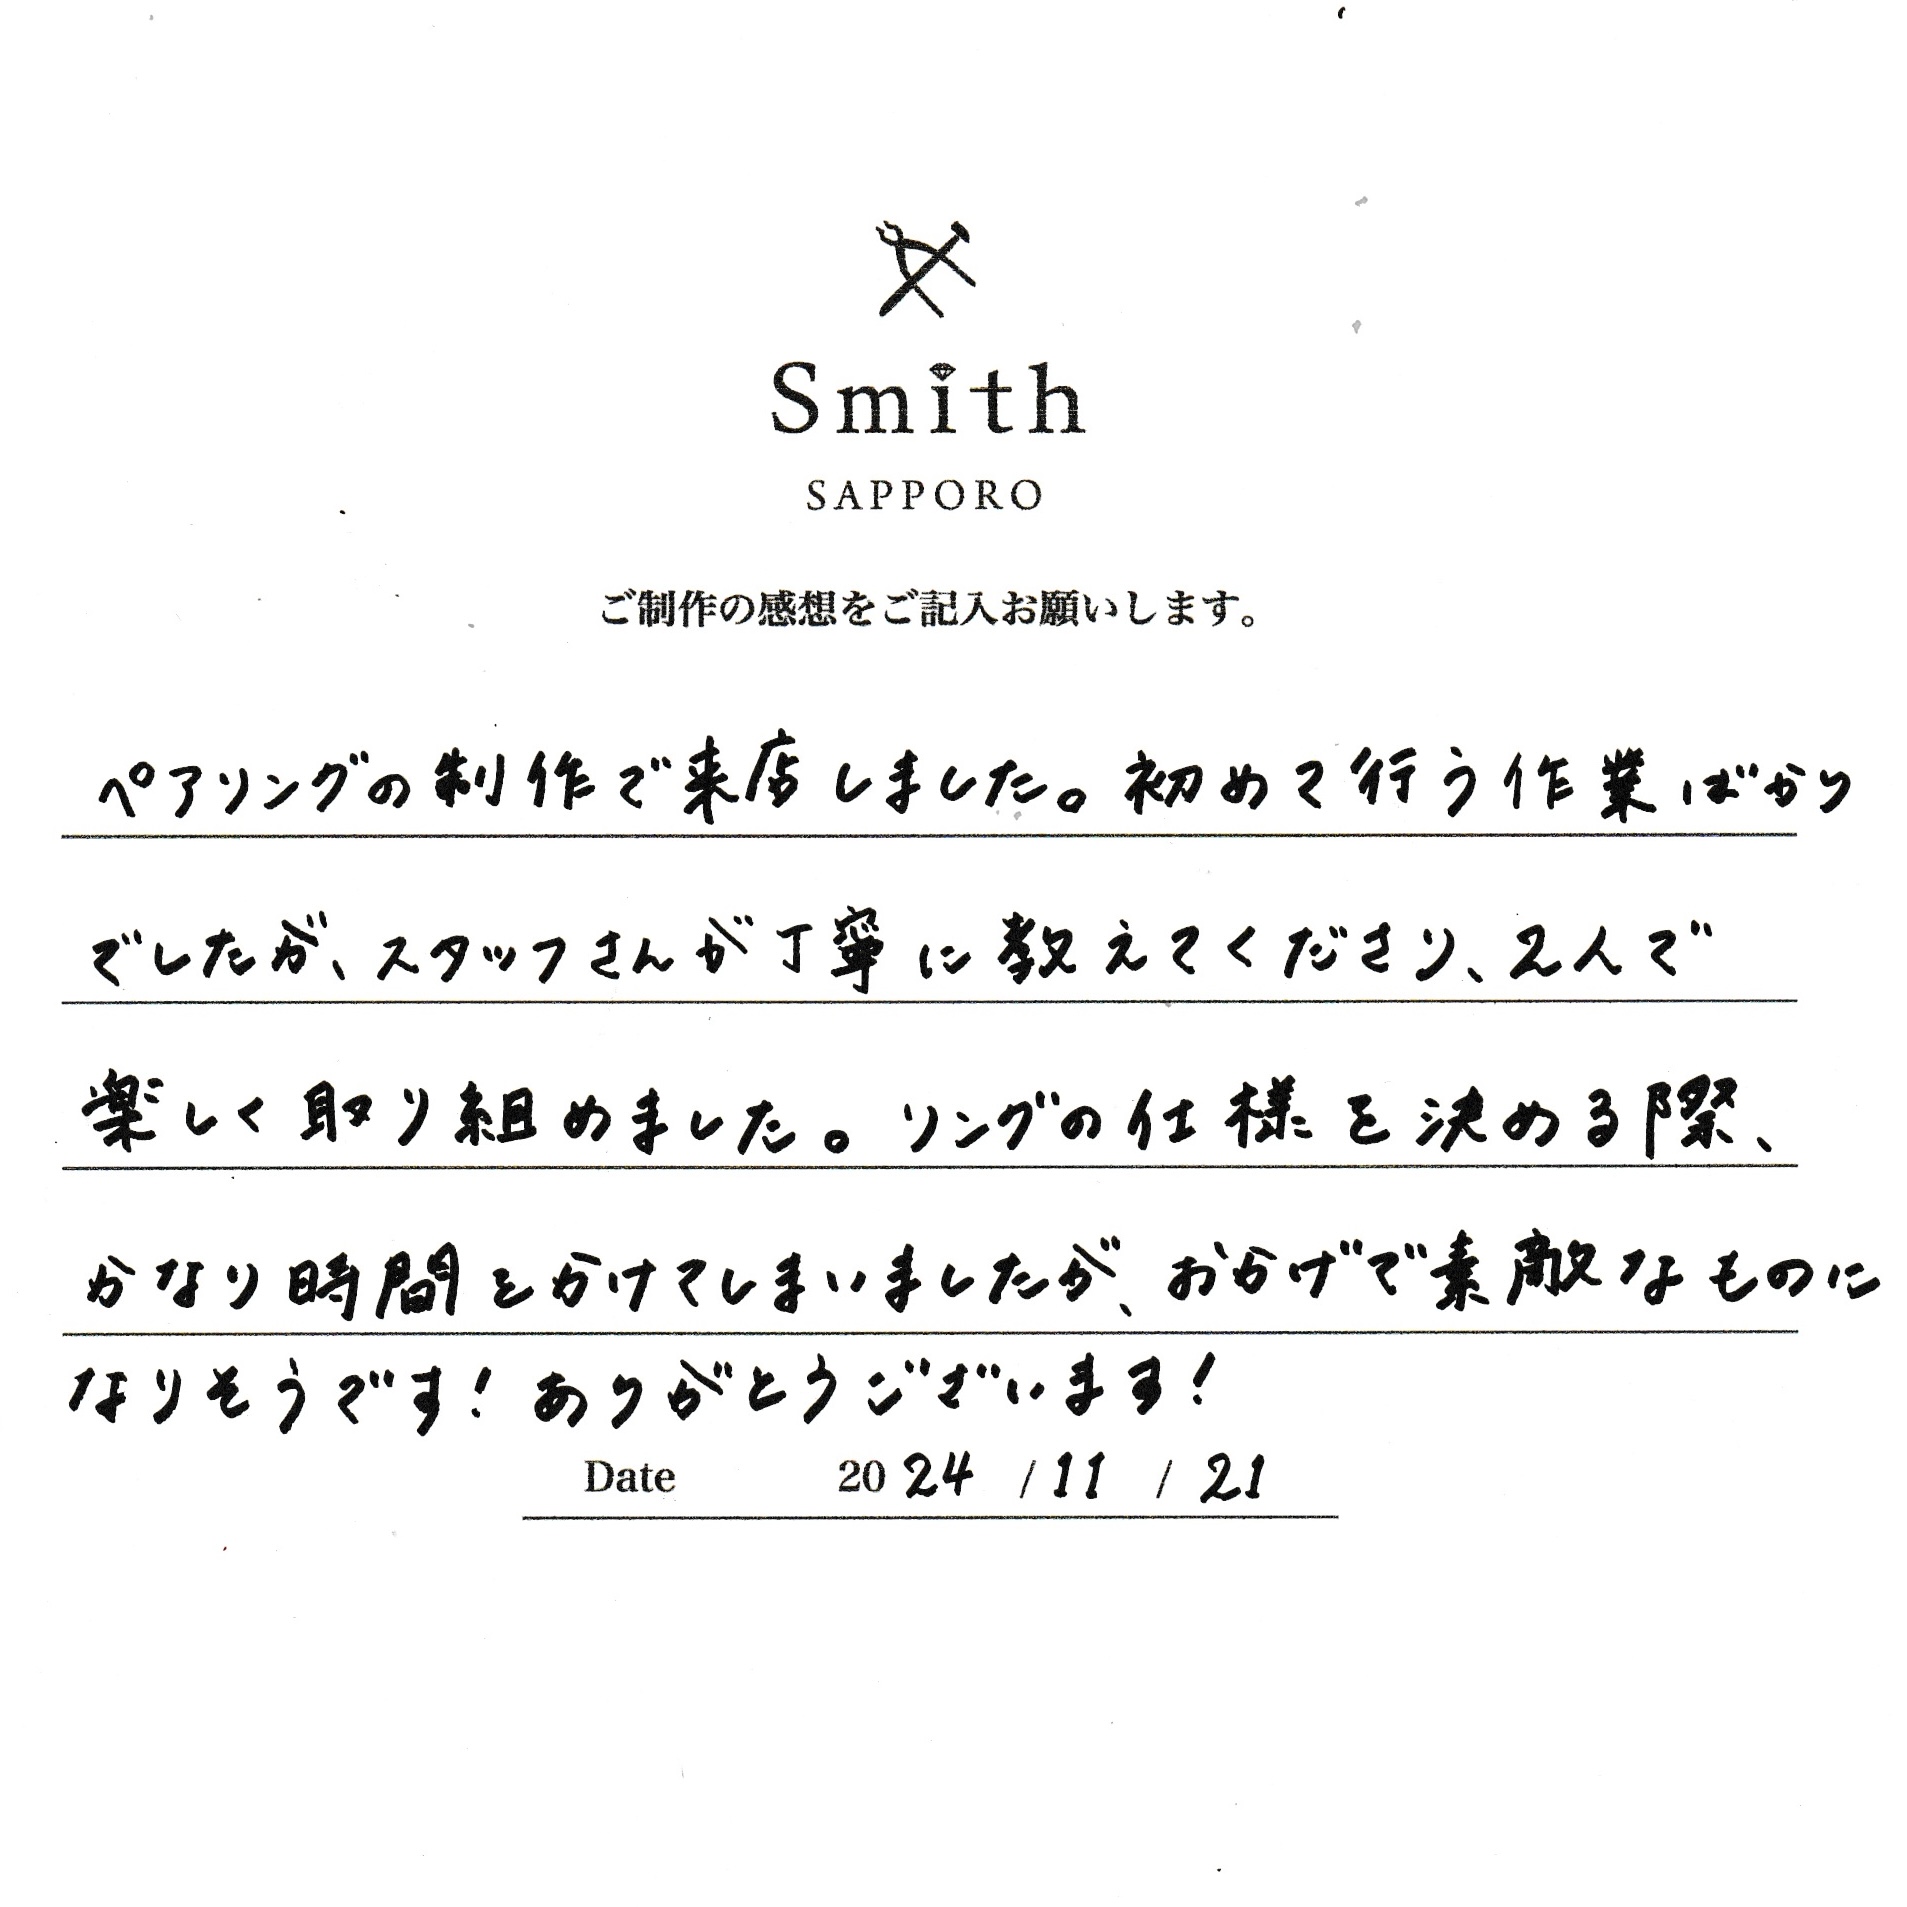 Smith
SAPPORO
ご制作の感想をご記入お願いします。
ペアリングの制作で来店しました。初めて行う作業ばかり
でしたが、スタッフさんが丁寧に教えてくださり、2人で
楽しく取り組めました。リングの仕様を決める際、
かなり時間をかけてしまいましたが、おかげで素敵なものに
なりそうです!ありがとうございます!
Date 2024 / 11 / 21